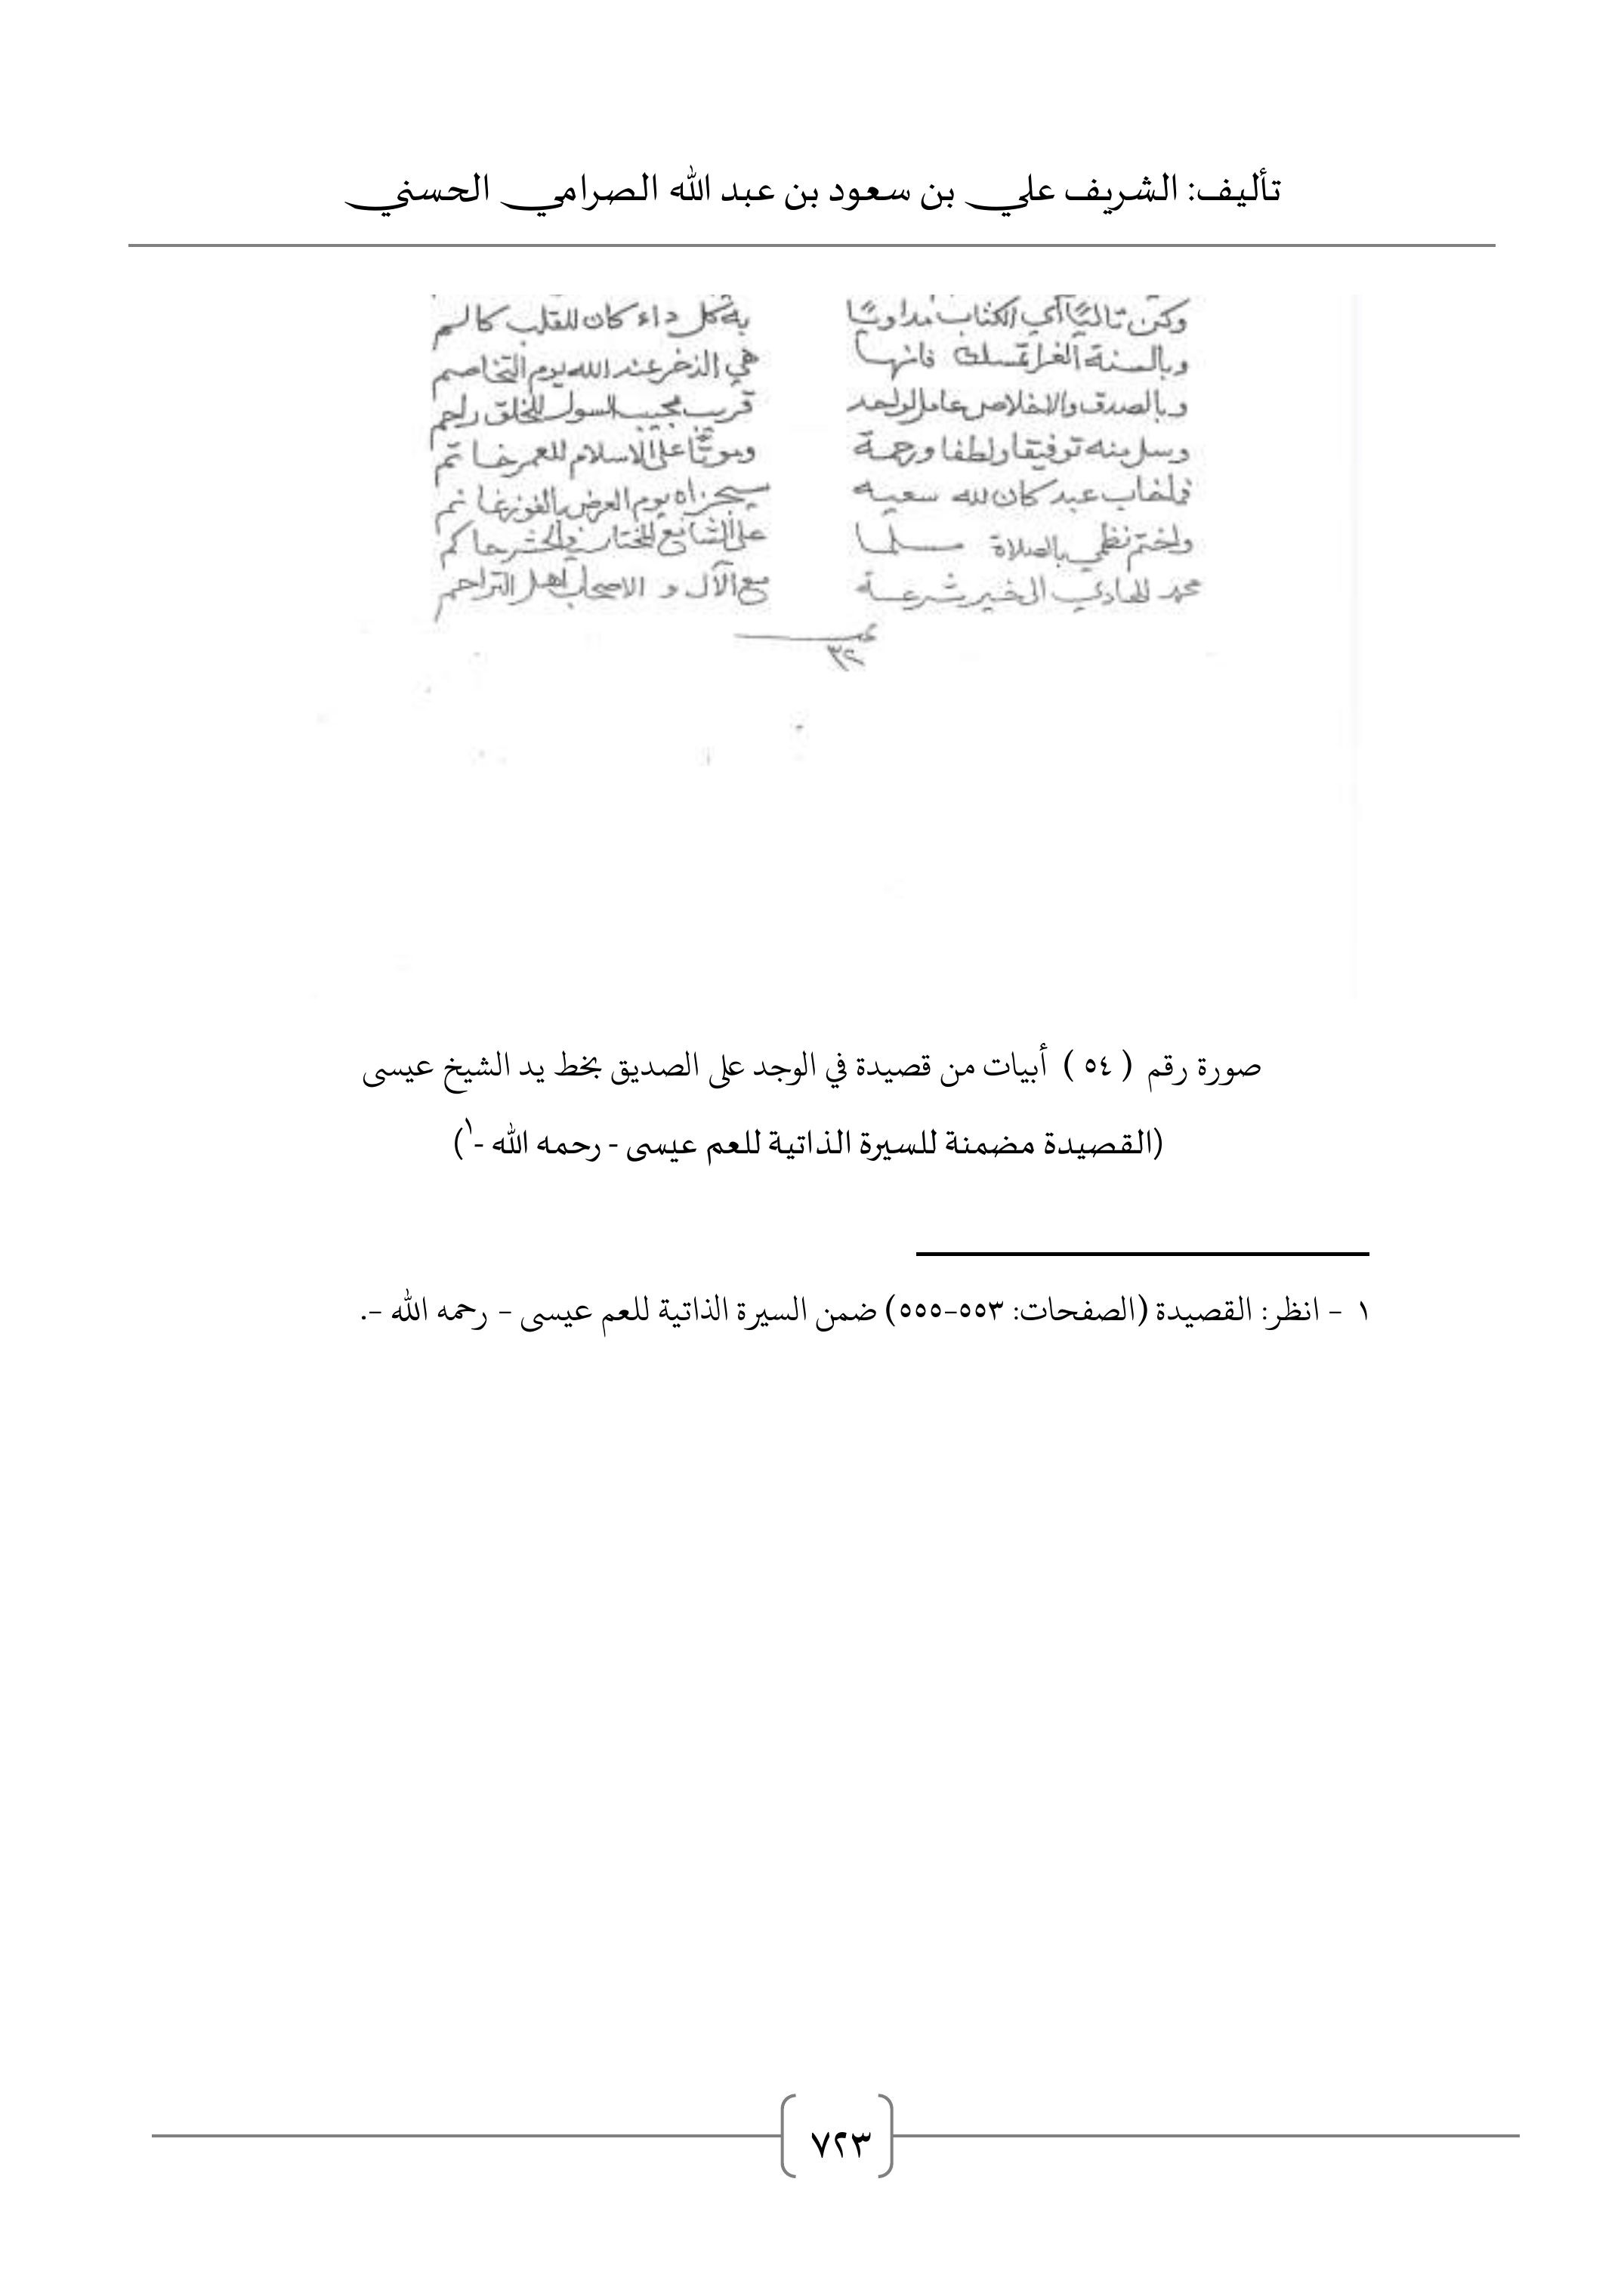 تأليف: الشريف علي بن سعود بن عبد الله الصرامي الحسني
وكن تاليًا آي الكتاب مداويًا به كل داء كان للقلب كالم
وبالسنة الغرا تمسك فانها هي الذخر عند الله يوم التخاصم
وبالصدق والاخلاص عامل لواحد قريب مجيب السول للخلق راحم
وسل منه توفيقا ولطفا ورحمة وموتًا على الاسلام للعمر خاتم
فما خاب عبد كان لله سعيه سيجزاه يوم العرض بالفوز غانم
واختم نظمي بالصلاة مسلما على الشافع المختار في الحشر حاكم
محمد الهادي الى خير شرعة مع الآل و الاصحاب اهل التراحم
٣٢
صورة رقم ( ٥٤ ) أبيات من قصيدة في الوجد على الصديق بخط يد الشيخ عيسى
(القصيدة مضمنة للسيرة الذاتية للعم عيسى - رحمه الله -١)
١ - انظر: القصيدة (الصفحات: ٥٥٣-٥٥٥) ضمن السيرة الذاتية للعم عيسى - رحمه الله -.
٧٢٣